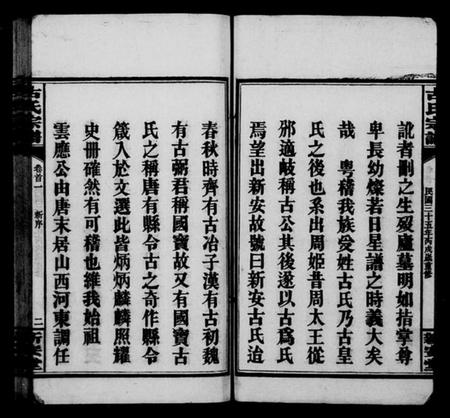 訛者刪之生歿廬墓明如指掌尊
卑長幼燦若日星譜之時義大矣
哉 粵稽我族受姓古氏乃古皇
氏之後也系出周姬昔周太王從
邠適岐稱古公其後遂以古爲氏
焉望出新安故號曰新安古氏迨
民國三十五年丙戌歲重修
古氏宗譜
卷首一
新序
二
春秋時齊有古冶子漢有古初魏
有古弼君稱國寶故又有國寶古
氏之稱唐有縣令古之奇作縣令
箴入於文選此皆炳炳麟麟照耀
史冊確然有可稽也維我始祖
雲應公由唐末居山西河東調任